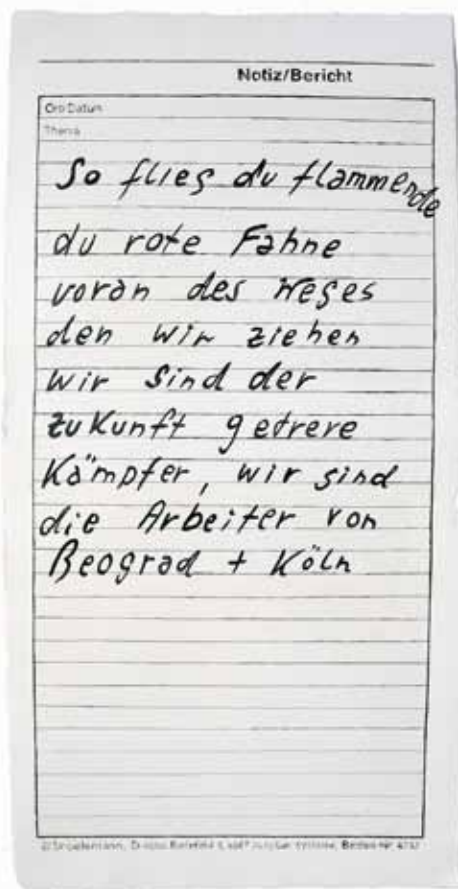 Notiz/Bericht
Ort/Datum
Thema
So flieg du flammende
du rote Fahne
voran des Weges
den wir ziehen
wir sind der
zukunft getreue
Kämpfer, wir sind
die Arbeiter von
Beograd + Köln